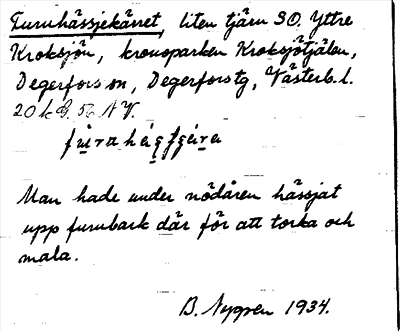 Furuhässjekänet, liten tjärn SO. Yttre
Kroksjön, kronoparken Kroksjötjälen,
Degerfors sn, Degerfors tg, Västerb. l.
20 k B. 56 NV.
Man hade under nödåren hässjat
upp furubark där för att torka och
mala.
B. Nygren 1934.